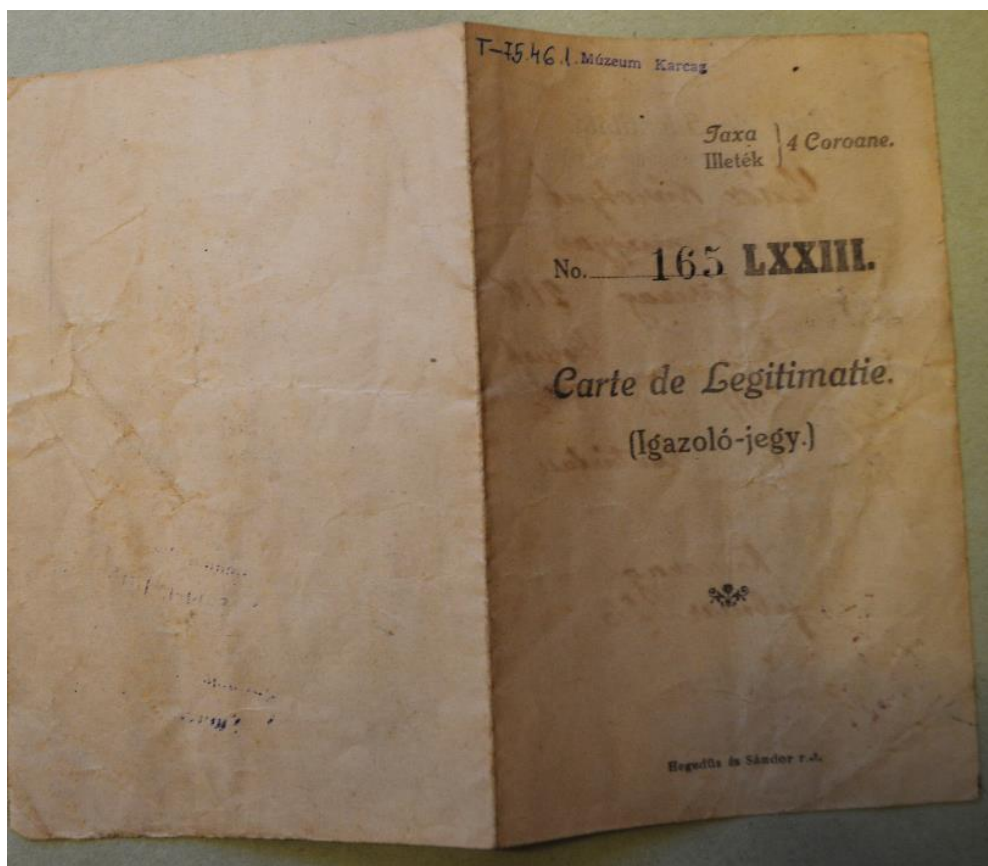 T-75.46.1. Múzeum Karcag
Taxa
Illeték } 4 Coroane.
No. 165 LXXIII.
Carte de Legitimatie.
(Igazoló-jegy.)
Hegedűs és Sándor r.-t.